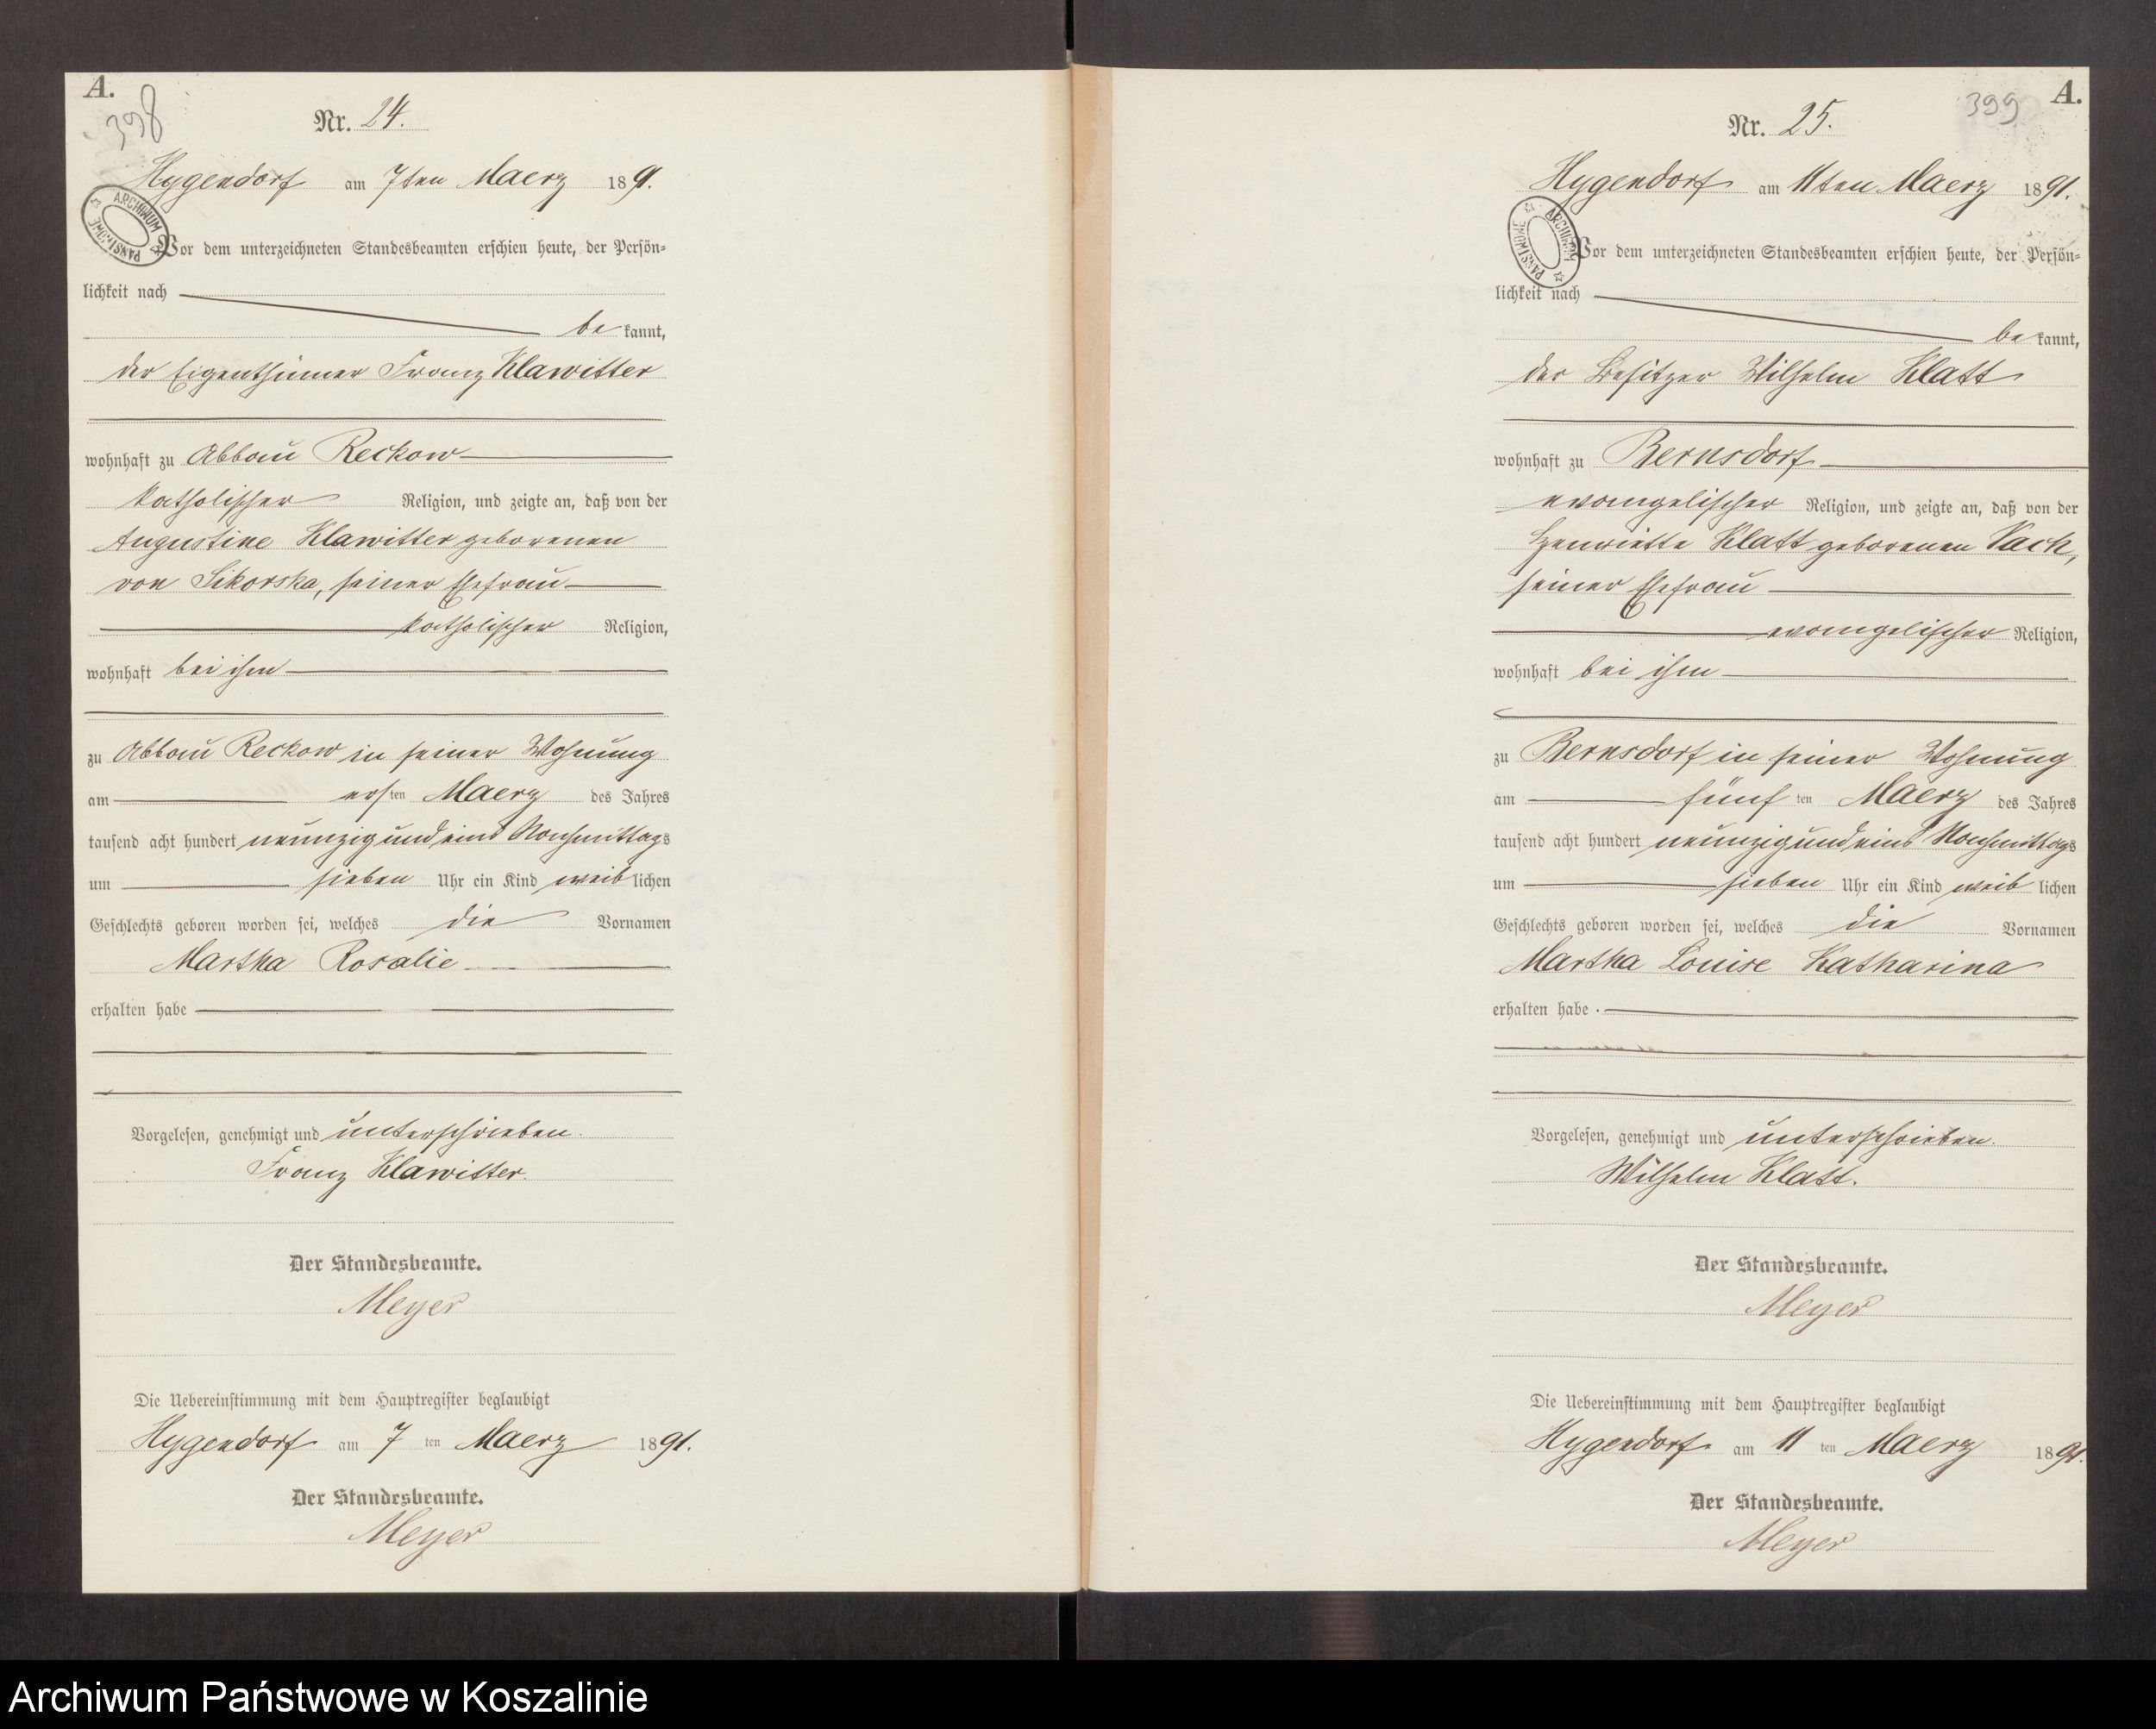 A.
398
Nr. 24.
Hygendorf am 7ten Maerz 1891.
ARCHIWUM PAŃSTWOWE
Vor dem unterzeichneten Standesbeamten erschien heute, der Persön-
lichkeit nach
be kannt,
der Eigenthümer Franz Klawitter
wohnhaft zu Abbau Reckow
katholischer Religion, und zeigte an, daß von der
Augustine Klawitter geborenen
von Sikorska, seiner Ehefrau
katholischer Religion,
wohnhaft bei ihm
zu Abbau Reckow in seiner Wohnung
am ersten Maerz des Jahres
tausend acht hundert neunzig und eins Nachmittags
um sieben Uhr ein Kind weiblichen
Geschlechts geboren worden sei, welches die Vornamen
Martha Rosalie
erhalten habe
Vorgelesen, genehmigt und unterschrieben.
Franz Klawitter.
Der Standesbeamte.
Meyer
Die Uebereinstimmung mit dem Hauptregister beglaubigt
Hygendorf am 7 ten Maerz 1891.
Der Standesbeamte.
Meyer
A.
399
Nr. 25.
Hygendorf am 11ten Maerz 1891.
ARCHIWUM PAŃSTWOWE
Vor dem unterzeichneten Standesbeamten erschien heute, der Persön-
lichkeit nach
be kannt,
der Besitzer Wilhelm Klatt
wohnhaft zu Bernsdorf
evangelischer Religion, und zeigte an, daß von der
Henriette Klatt geborenen Vack,
seiner Ehefrau
evangelischer Religion,
wohnhaft bei ihm
zu Bernsdorf in seiner Wohnung
am fünf ten Maerz des Jahres
tausend acht hundert neunzig und eins Nachmittags
um sieben Uhr ein Kind weib lichen
Geschlechts geboren worden sei, welches die Vornamen
Martha Louise Katharina
erhalten habe.
Vorgelesen, genehmigt und unterschrieben.
Wilhelm Klatt.
Der Standesbeamte.
Meyer
Die Uebereinstimmung mit dem Hauptregister beglaubigt
Hygendorf am 11 ten Maerz 1891.
Der Standesbeamte.
Meyer
Archiwum Państwowe w Koszalinie